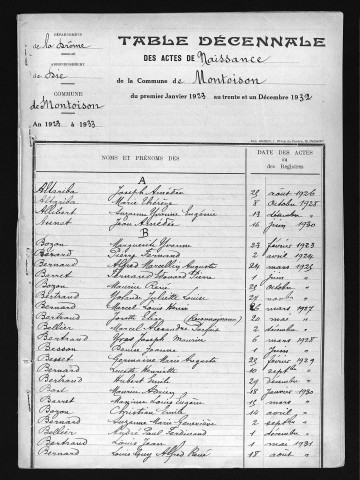 DÉPARTEMENT
de la Drôme
ARRONDISSEMENT
de Die
COMMUNE
de Montoison
An 1923 à 1933
TABLE DÉCENNALE
DES ACTES DE Naissance
de la Commune de Montoison
du premier Janvier 1923 au trente et un Décembre 1932
NOMS ET PRÉNOMS DES
DATE DES ACTES
ou
des Registres
A
Altariba Joseph Amédée 25 août 1926
Altariba Marie Thérèze 8 Octobre 1928
Allibert Suzanne Yvonne Eugénie 13 décembre "
Jean Amédée 16 juin 1930
B
Bozon Marguerite Yvonne 23 février 1923
Bérard Pierre Fernand 2 avril 1924
Bernard Alfred Marcellin Auguste 24 mars 1925
Berret Fernand Edouard Pierre 7 juin "
Bozon Maurice René Octobre "
Bertrand Yolande Juliette Louise 24 novbre "
Bernard Marcel Louis Henri 26 mars 1927
Bertrand Josette Eliza 20 mai "
Bellier Marcel Alexandre 2 décembre "
Bertrand Yves Joseph Maurice 6 mars 1928
Besson Denise Jeanne 1 juin "
Besset Germaine Marie Augusta 23 février 1929
Bernard Lucette Henriette 10 septbre "
Bertrand Hubert Emile 29 décembre "
Maurice 18 janvier 1930
Berret Maxime Louis Eugène 15 mars "
Bozon Christian Emile 14 avril "
Bernard Suzanne Marie Geneviève 2 septbre "
Bellier André Paul Ferdinand 1 décembre "
Bertrand Louis Jean 1 mai 1931
Bernard Louis Guy Alfred René 18 août "